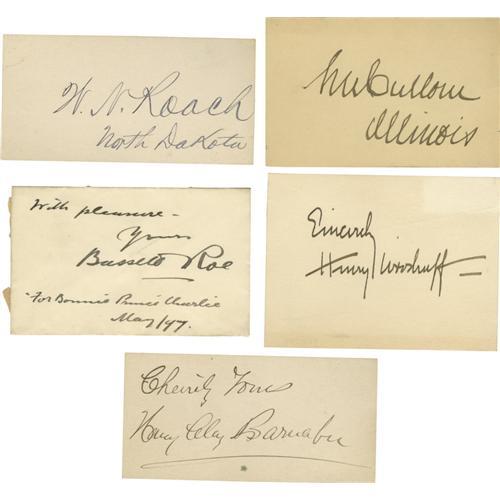 W. N. Roach
North Dakota
SM Cullom
Illinois
With pleasure -
Yours
Bassett Roe
"For Bonnie Prince Charlie
May/97.
Sincerely
Henry Woodruff
Cheerily Yours
Henry Clay Barnabee